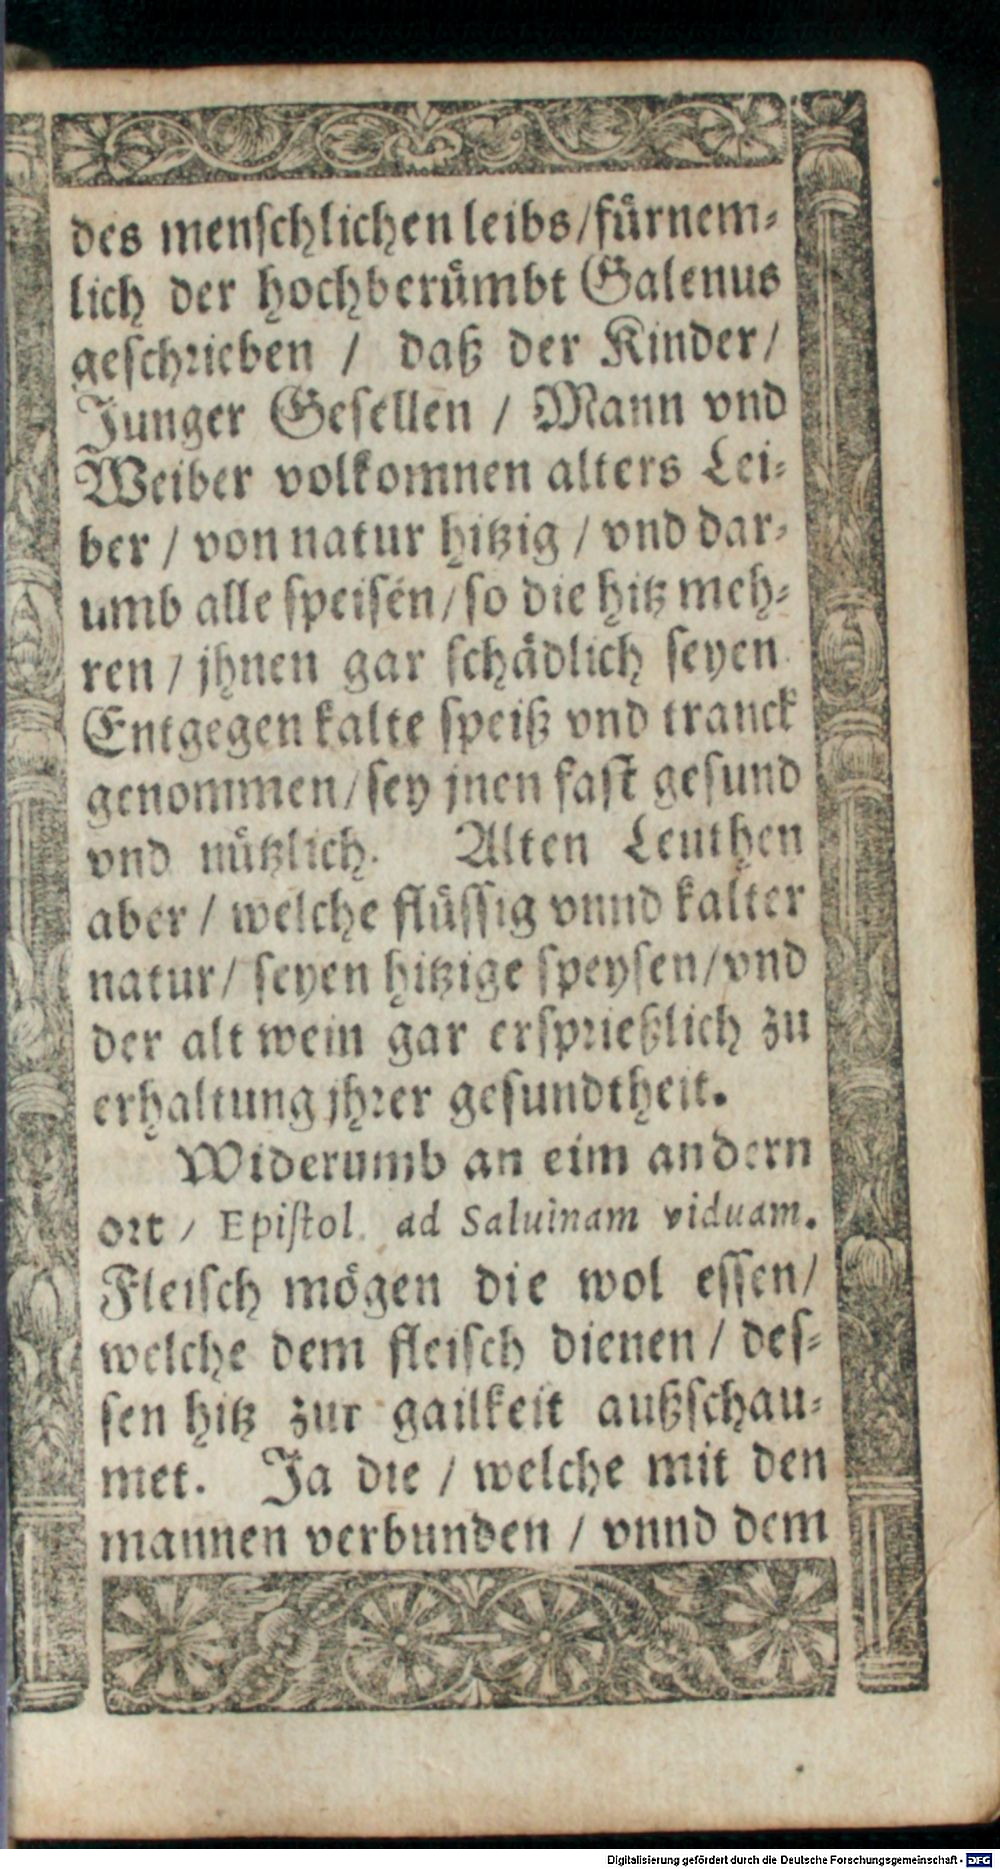 des menschlichen leibs/fürnem-
lich der hochberümbt Galenus
geschrieben / daß der Kinder/
Junger Gesellen / Mann vnd
Weiber volkomnen alters Lei-
ber / von natur hitzig / vnd dar-
umb alle speisen/so die hitz meh-
ren / jhnen gar schädlich seyen
Entgegen kalte speiß vnd tranck
genommen/sey jnen fast gesund
vnd nützlich. Alten Leuthen
aber / welche flüssig vnnd kalter
natur/ seyen hitzige speysen/vnd
der alt wein gar ersprießlich zu
erhaltung jhrer gesundtheit.
Widerumb an eim andern
ort / Epistol. ad Saluinam viduam.
Fleisch mögen die wol essen/
welche dem fleisch dienen / des-
sen hitz zur gailkeit außschau-
met. Ja die / welche mit den
mannen verbunden / vnnd dem
Digitalisierung gefördert durch die Deutsche Forschungsgemeinschaft - DFG